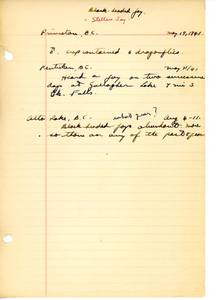 Black-headed jay.
= Stellers Jay
Princeton, B.C. May 19, 1941.
crop contained 4 dragonflies.
Penticton, B.C. May 21/41
Heard a jay on two successive
days at Gallagher Lake 7 mi S
Ok. Falls.
Alta Lake, B.C. what year? Aug 4-11.
Black-headed jays abundant more
so than any of the past years